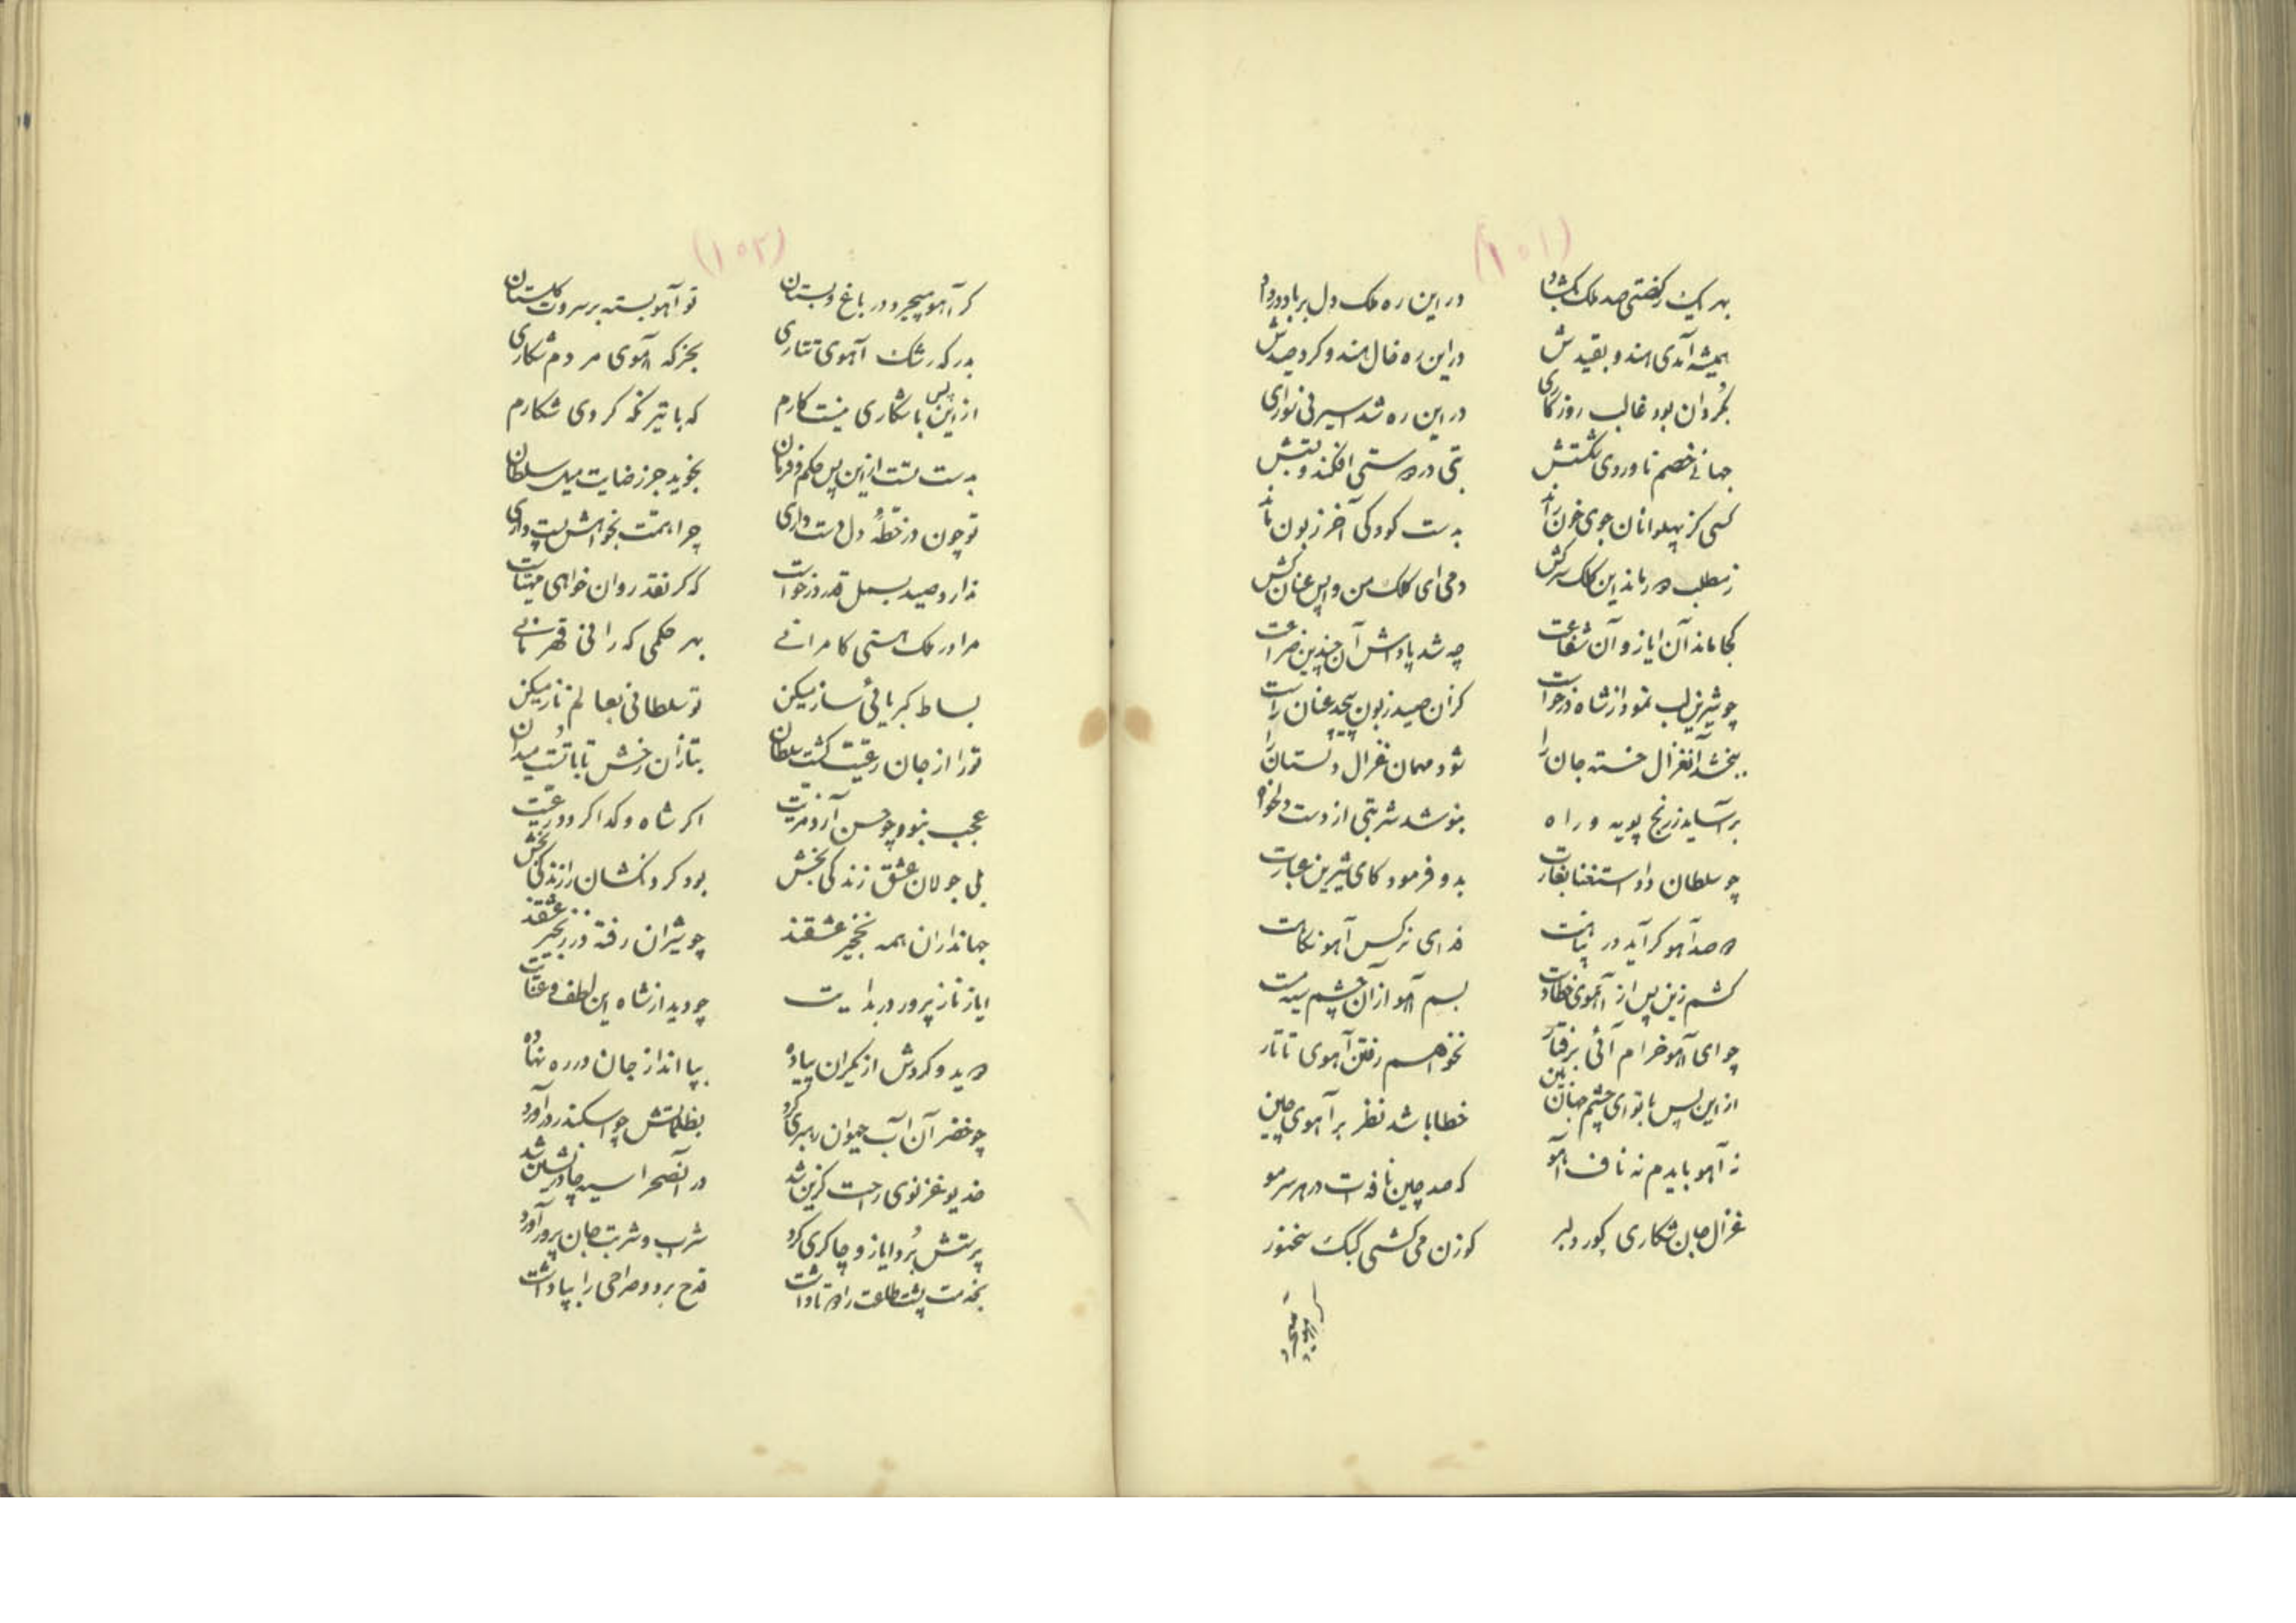 (١٥١)
بهر یک رکضتی صد ملک بگشاد در این ره ملک دل بر باد در داد
همیشه آمدی هندو بقیدش در این ره خال هندو کرد صیدش
بگردان بود غالب روزگاری در این ره شد اسیر نی سواری
جهانی خصم ناوردی شکستش بتی در هستی افکند و بستش
کسی کز پهلوانان جوی خون راند بدست کودکی آخر زبون ماند
ز مطلب ماند این کلک سرکش دمی ای کلک من واپس عنان کش
کجا ماند آن ایاز و آن شفاعت چه شد پاداش آن چندین ضراعت
چو شیرین لب نمود از شاه درخواست کزان صید زبون پیچد عنان راست
ببخشد آنغزال خسته جان را شود مهمان غزال دلستان را
بر آساید ز رنج پویه و راه بنوشد شربتی از دست دلخواه
چو سلطان داد استغنا بغارت بدو فرمود کای شیرین عبارت
صد آهو گر آید در پناهت فدای نرگس آهو نگاهت
کشم زین پس از آهوی خطا دست بسم آهو از آن چشم سیه مست
چو ای آهو خرام آئی برفتار نخواهم رفتن آهوی تاتار
از این پس با تو ای چشم جهان بین خطا باشد نظر بر آهوی چین
نه آهو بایدم نه ناف آهو که صد چین نافه است در هر سر مو
غزال جان شکاری پور دلبر گوزن می کشی کبک سخنور
(١٥٢)
گر آهو میچرد در باغ و بستان تو آهو بسته بر سروت گلستان
بدر که رشک آهوی تتاری بجز که آهوی مردم شکاری
از این پس با شکاری نیست کارم که با تیر نگه کردی شکارم
بدست تست از این پس حکم و فرمان نجوید جز رضایت میل سلطان
تو چون در خطهٔ دل دست داری چرا همت بخواهش پست داری
ندارد صید بسمل قدر درخواست که گر نقد روان خواهی مهیاست
مرا در ملک هستی کامرانی بهر حکمی که رانی قهرمانی
بساط کبریائی ساز میکن تو سلطانی بعالم ناز میکن
تو را از جان رعیت گشت سلطان بتازان رخش تا باتست میدان
عجب نبود چو حسن آرد مزیت اگر شاه و گدا گردد رعیت
بلی جولان عشق زندگی بخش بود گردنکشان را زندگی بخش
جهانداران همه نخجیر عشقند چو شیران رفته در زنجیر عشقند
ایاز ناز پرور در بدایت چو دید از شاه این لطف و عنایت
دوید و کردش از یکران پیاده بپا انداز جان در ره نهاده
چو خضر آن آب حیوان رهبری کرد بظلماتش چو اسکندر در آورد
خدیو غزنوی راحت گزین شد در آنصحرا سیه چادر نشین شد
پرستش برد ایاز و چاکری کرد شراب و شربت جان پرور آورد
بخدمت پشت طاعت را دو تا داشت قدح برد و صراحی را بپا داشت